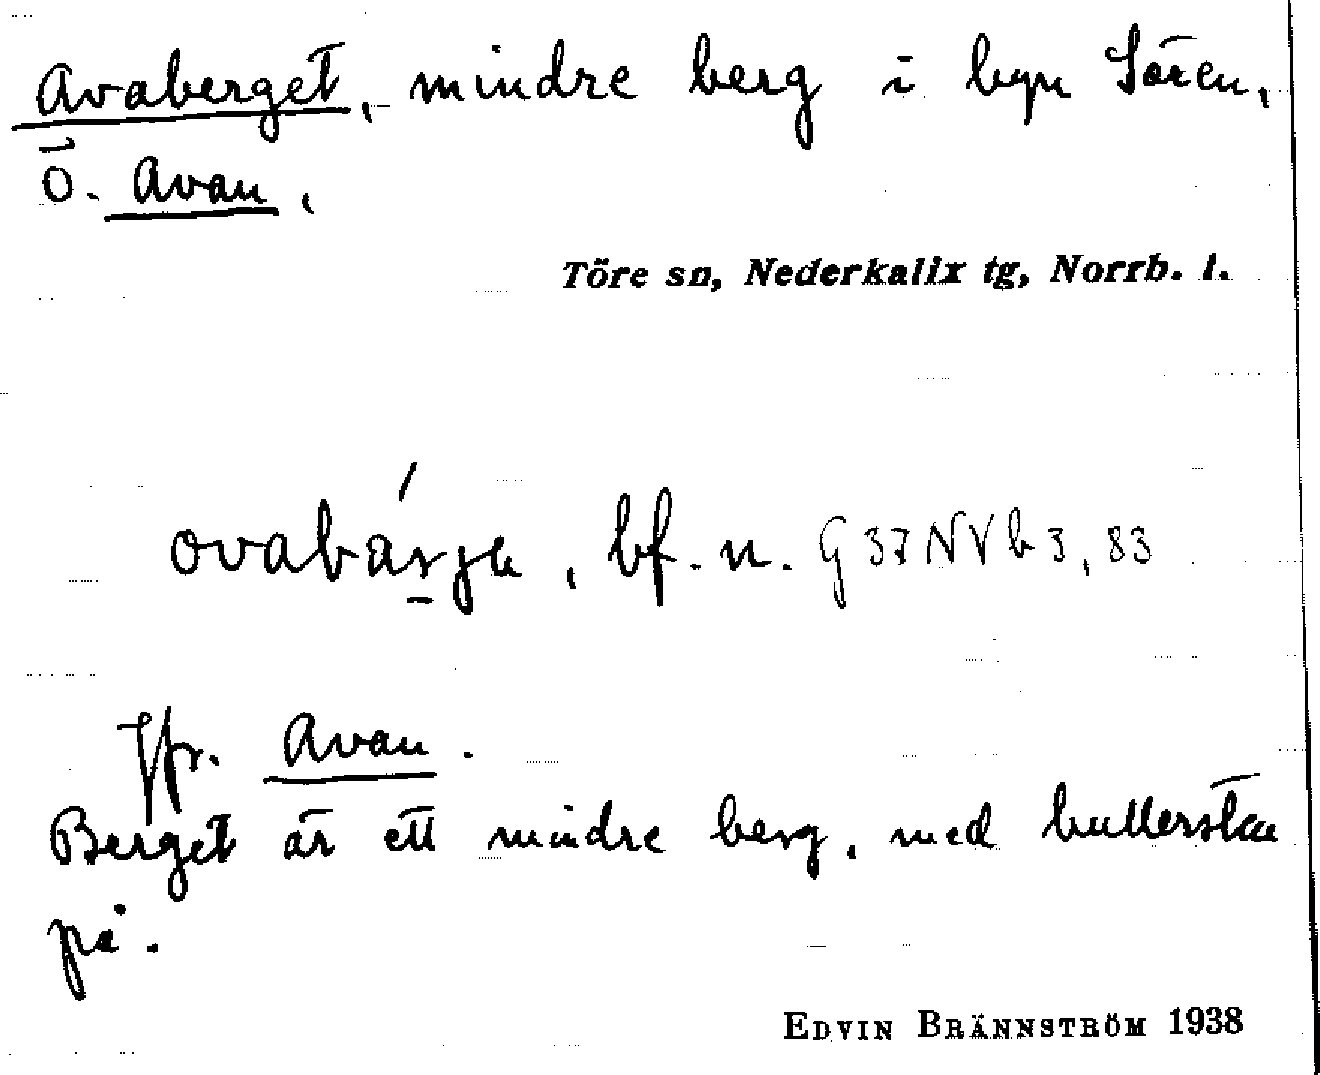 Avaberget, mindre berg i byn Sören,
ö. Avan.
Töre sn, Nederkalix tg, Norrb. l.
bf. n. G 37 NVb 3, 83
Jfr. Avan.
Berget är ett mindre berg, med bullersten
på.
EDVIN BRÄNNSTRÖM 1938